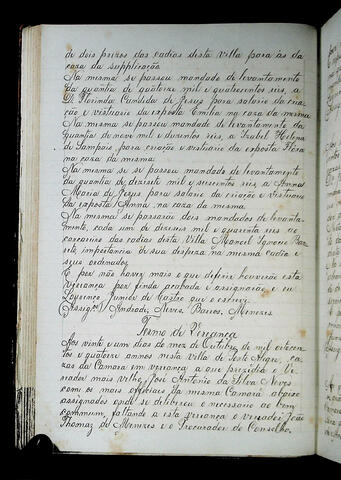 de dois prezos das cadias desta Villa para as da
casa da supplicação
Na mesma se passou mandado de levantamento
da quantia de quatorze mil e quatrocentos reis, a
D. Florinda Candida de Jesus para salario da cria-
ção e vestiario da exposta Emilia na caza da mesma
Na mesma se passou mandado de levantamento da
quantia de nove mil e duzentos reis, a Izabel Helena
de Sampaio, para criação e vestiario da exposta Flora
na caza da mesma.
Na mesma se se passou mandado de levantamento
da quantia de dezesete mil e seiscentos reis, a Anna
Maria de Jesus para salario da criação e vestiario
da exposta Anna, na casa da mesma.
Na mesma se passarão dois mandados de levanta-
mento, cada um de dezeseis mil e quarenta reis ao
carcereiro das cadias desta Villa Manoel Ignacio
importancia de sua despeza na mesma cadia e
seus ordenados.
E por não haver mais o que deferir houverão esta
vereança por finda acabada e assignarão e eu
Lourenço Junior de Castro que o escrevi.
Assignº/ Andrade, Neves, Barros, Menezes
Termo de Vereança
Aos vinte e um dias do mez de Outubro de mil oitocen-
tos e quatorze annos nesta villa de Porto Alegre, ca-
zas da Camara em vereança a que prezidio o Ve-
reador mais velho José Antonio da Silva Neves
com os mais officiaes da mesma Camara abaixo
assignados onde se deliberou o necessario ao bem
commum, faltando a esta vereança o vereador João
Thomaz de Menezes e o Procurador do Conselho.